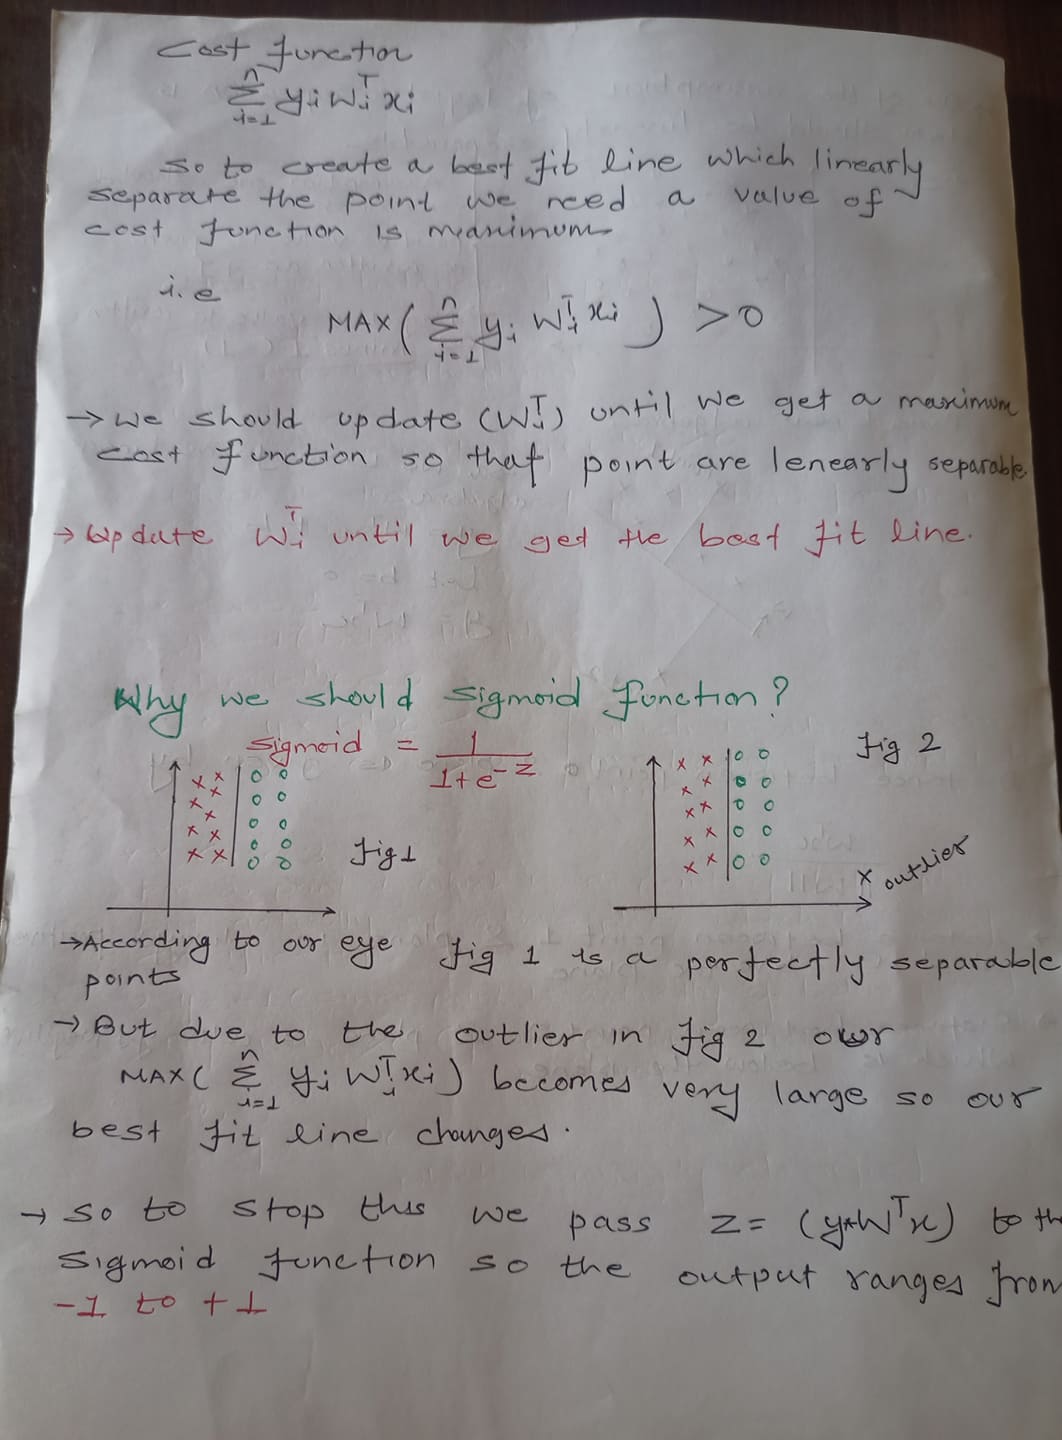 Cost function
n
Σ yi Wiᵀ xi
i=1
so to create a best fit line which linearly
separate the point we need a value of
cost function is maximum
i.e
MAX( Σ yi Wiᵀ xi ) > 0
n
i=1
→ We should update (Wiᵀ) until we get a maximum
cost function so that point are lenearly separable
→ Update Wiᵀ until we get the best fit line.
Why we should sigmoid function?
sigmoid = 1 / 1+e^-z
Fig 2
Fig 1
x outlier
→ According to our eye fig 1 is a perfectly separable
points
→ But due to the outlier in fig 2 our
MAX( Σ yi Wiᵀ xi ) becomes very large so our
n
i=1
best fit line changes.
→ so to stop this we pass z = (y*Wᵀx) to th
sigmoid function so the output ranges from
-1 to +1